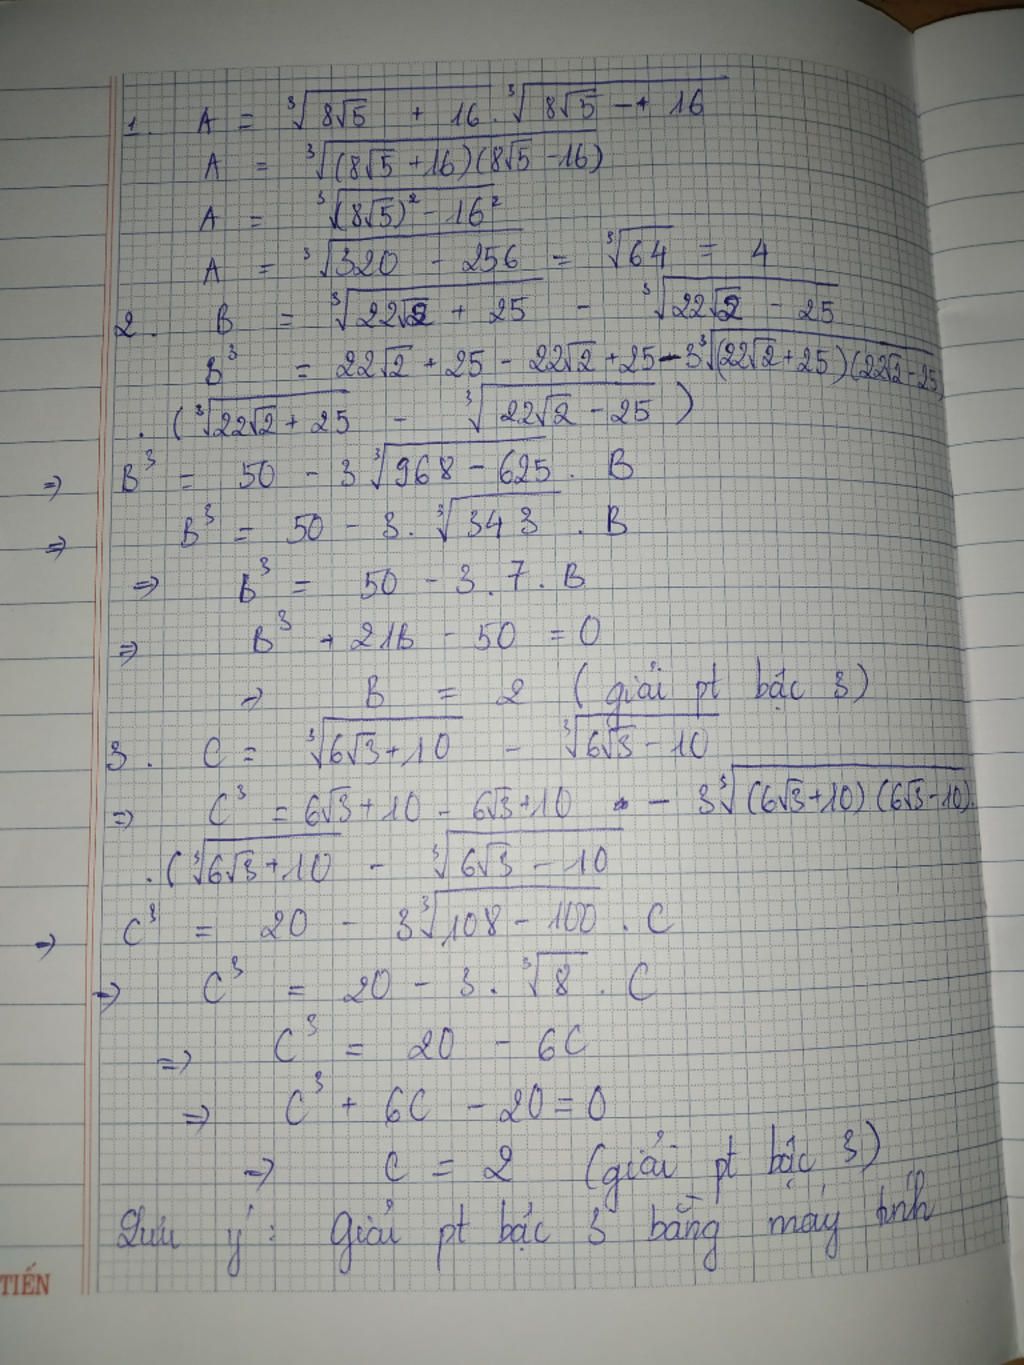 1. A = ∛(8√5 + 16) . ∛(8√5 -+ 16)
A = ∛((8√5 +16)(8√5 -16))
A = ∛((8√5)² - 16²)
A = ∛(320 - 256) = ∛64 = 4
2. B = ∛(22√2 + 25) - ∛(22√2 - 25)
B³ = 22√2 + 25 - 22√2 + 25 - 3∛((22√2 + 25)(22√2 - 25)
. (∛(22√2 + 25) - ∛(22√2 - 25))
⇒ B³ = 50 - 3∛(968 - 625) . B
⇒ B³ = 50 - 3. ∛343 . B
⇒ B³ = 50 - 3.7.B
⇒ B³ + 21B - 50 = 0
⇒ B = 2 (giải pt bậc 3)
3. C = ∛(6√3+10) - ∛(6√3 - 10)
⇒ C³ = 6√3+10 - 6√3+10 - 3∛((6√3+10)(6√3-10)).
.(∛(6√3+10) - ∛(6√3 - 10)
⇒ C³ = 20 - 3∛(108 - 100) . C
⇒ C³ = 20 - 3. ∛8 . C
⇒ C³ = 20 - 6C
⇒ C³ + 6C - 20 = 0
⇒ C = 2 (giải pt bậc 3)
Lưu ý: Giải pt bậc 3 bằng máy tính
TIẾN